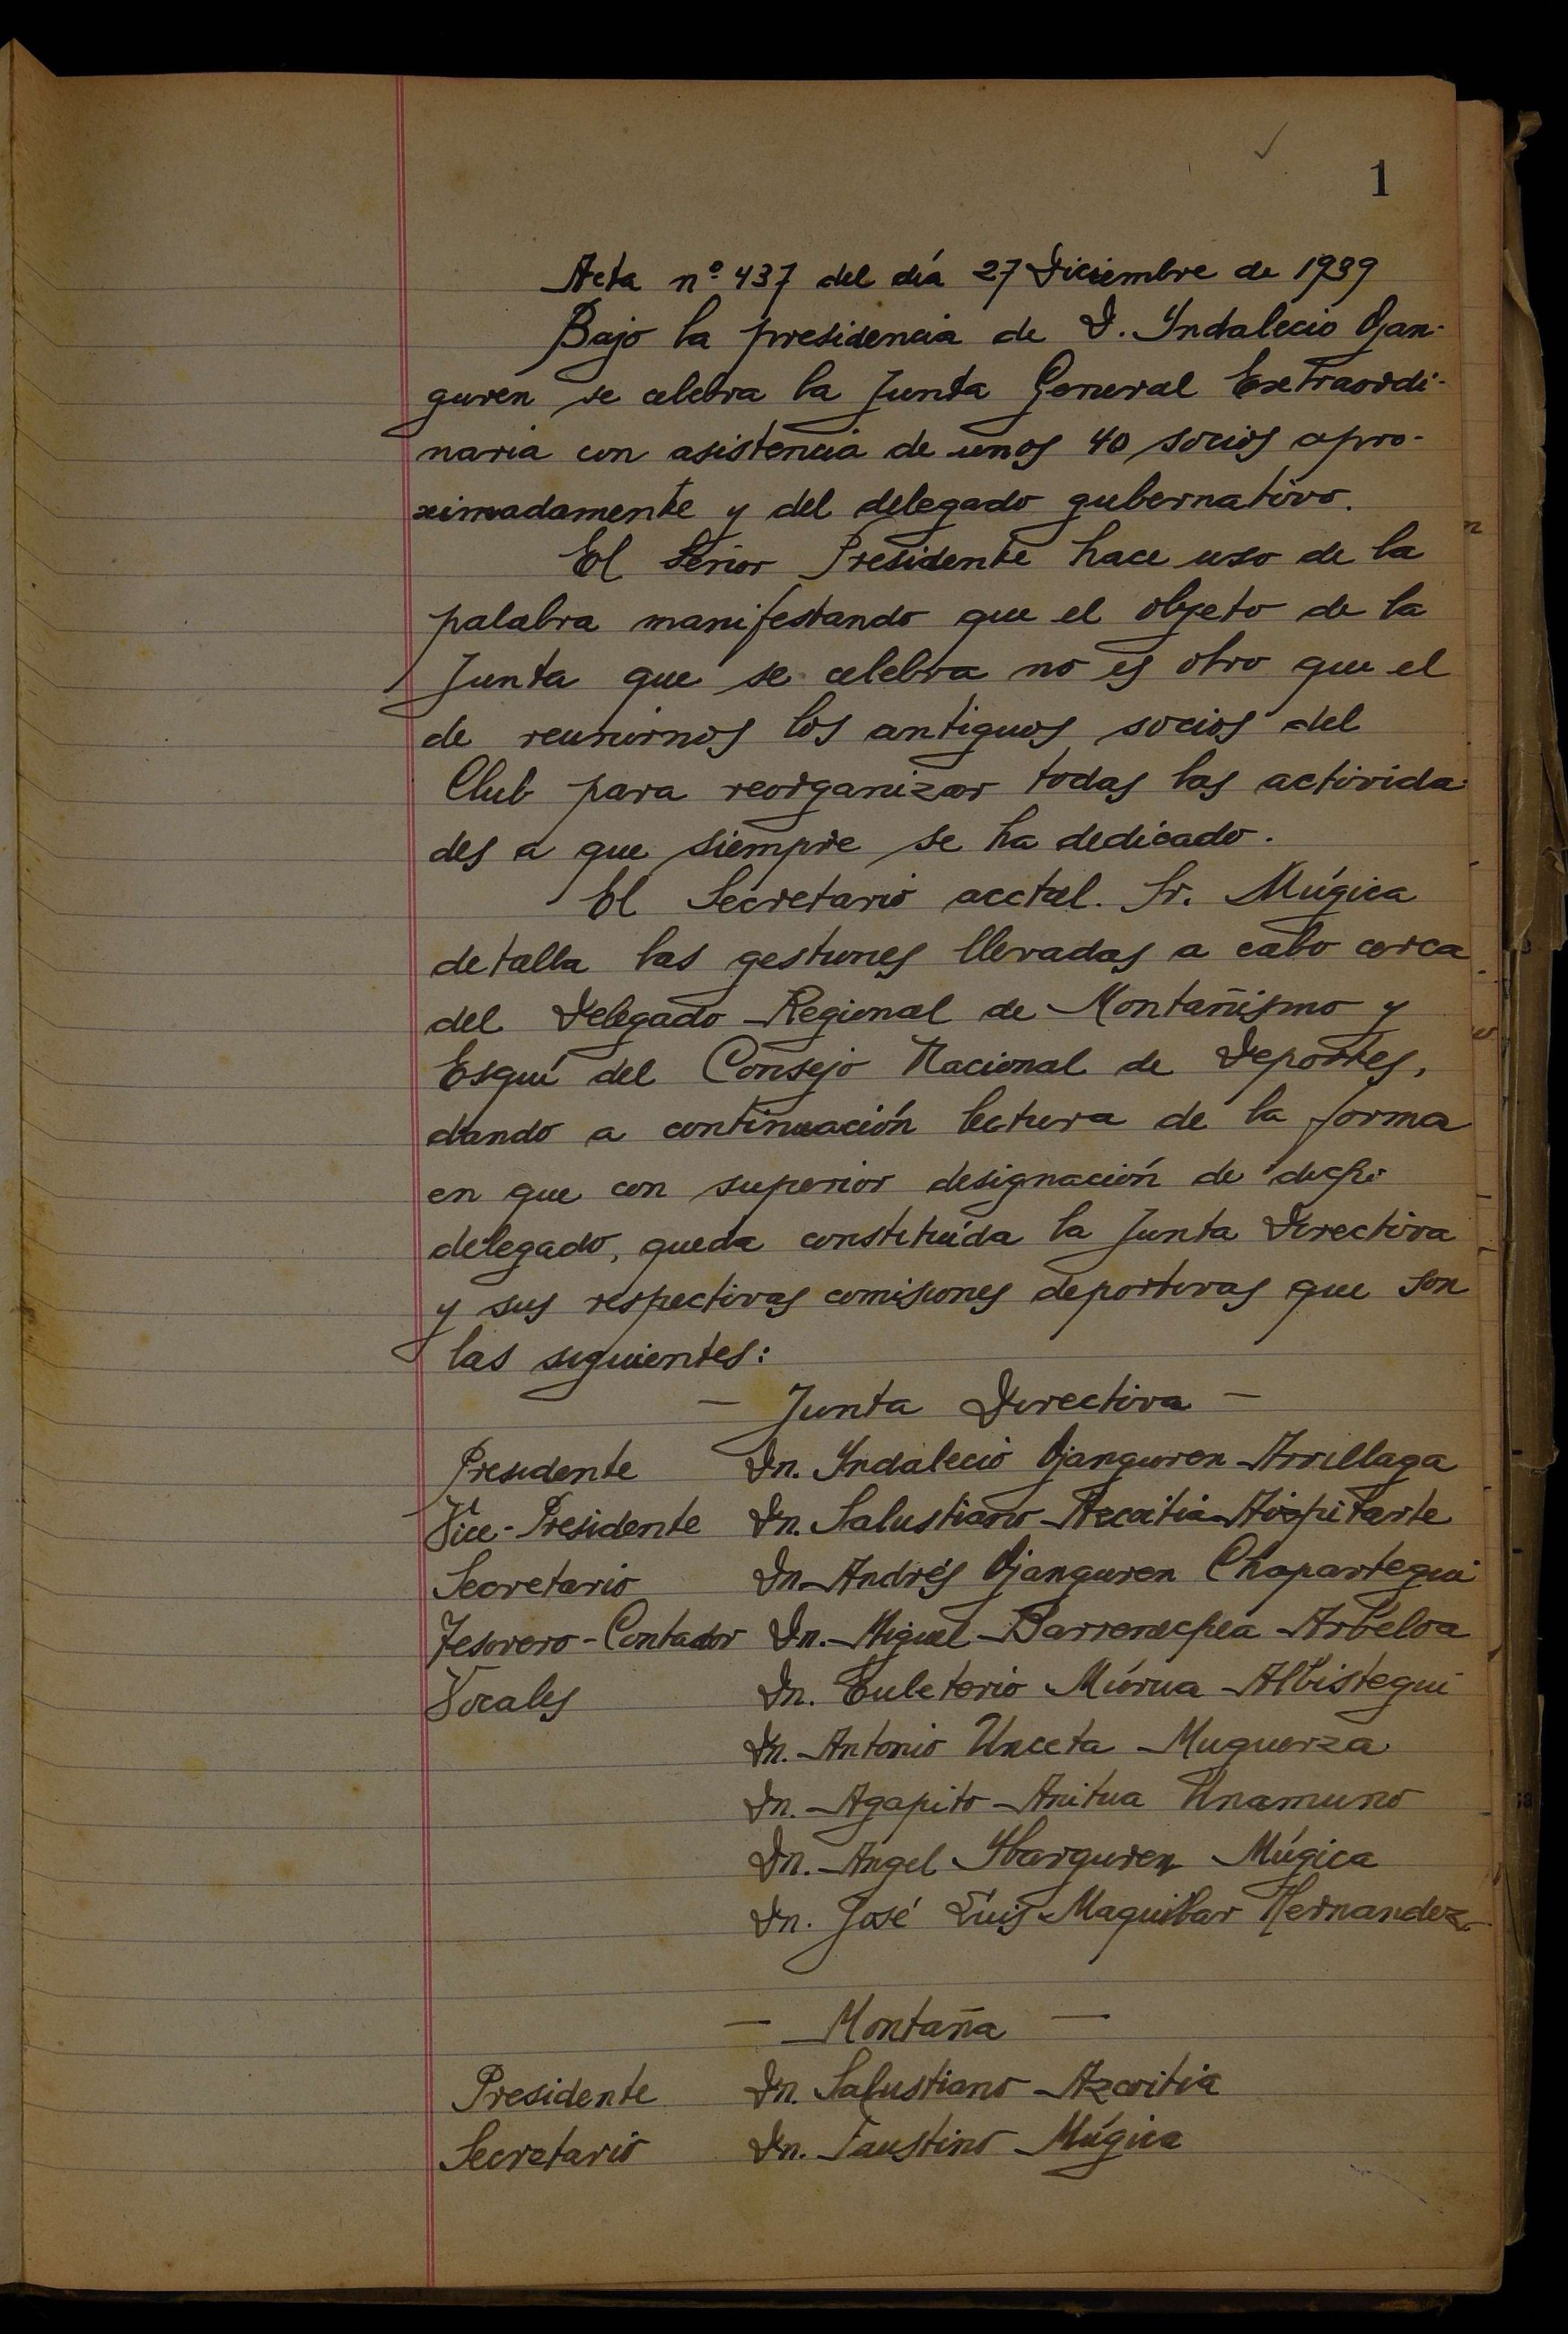 1
Acta nº 437 del día 27 Diciembre de 1939
Bajo la presidencia de D. Yndalecio Ojan-
guren se celebra la Junta General Extraordi-
naria con asistencia de unos 40 socios apro-
ximadamente y del delegado gubernativo.
El Señor Presidente hace uso de la
palabra manifestando que el objeto de la
Junta que se celebra no es otro que el
de reunirnos los antiguos socios del
Club para reorganizar todas las activida-
des a que siempre se ha dedicado.
El Secretario acctal. Sr. Múgica
detalla las gestiones llevadas a cabo cerca
del Delegado Regional de Montañismo y
Esquí del Consejo Nacional de Deportes,
dando a continuación lectura de la forma
en que con superior designación de dicho
delegado, queda constituída la Junta Directiva
y sus respectivas comisiones deportivas que son
las siguientes:
— Junta Directiva —
Presidente Dn. Yndalecio Ojanguren Arrillaga
Vice-Presidente Dn. Salustiano Azcoitia Aizpitarte
Secretario Dn. Andrés Ojanguren Chapartegui
Tesorero-Contador Dn. Miguel Barrenechea Arbeloa
Vocales Dn. Euleterio Múrua Albistegui
Dn. Antonio Unceta Muguerza
Dn. Agapito Anitua Unamuno
Dn. Angel Ybarguren Múgica
Dn. José Luis Maguibar Hernandez
— Montaña —
Presidente Dn. Salustiano Azcoitia
Secretario Dn. Faustino Múgica